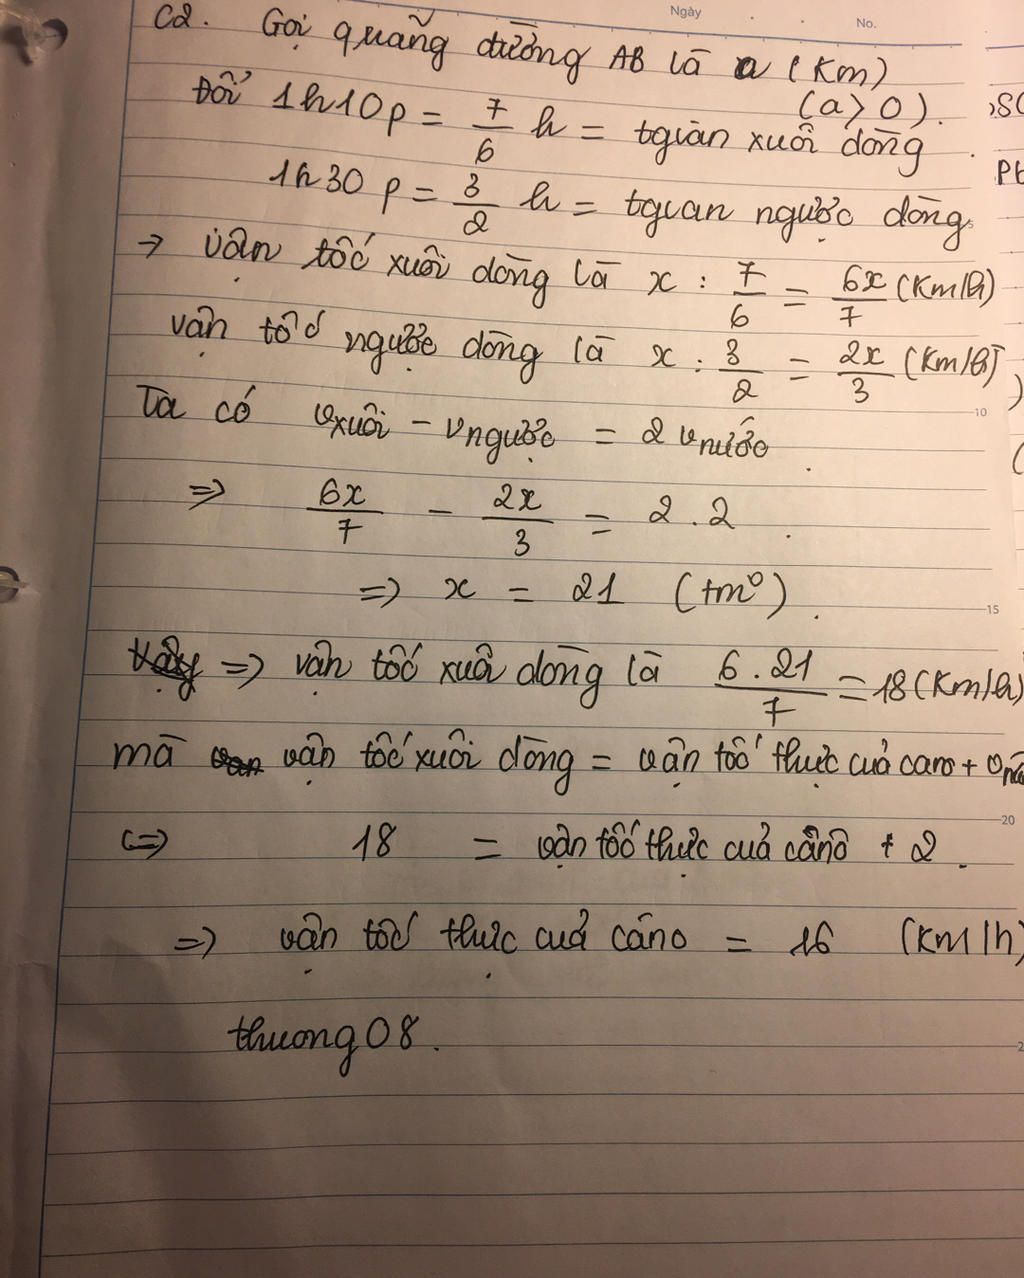 Ngày
No.
C2. Gọi quãng đường AB là a (Km)
(a > 0).
Đổi 1h10p = 7/6 h = tgian xuôi dòng.
1h30p = 3/2 h = tgian ngược dòng.
→ vận tốc xuôi dòng là x : 7/6 = 6x/7 (Km/h)
vận tốc ngược dòng là x : 3/2 = 2x/3 (Km/h)
Ta có vxuôi - vngược = 2 vnước.
=> 6x/7 - 2x/3 = 2.2.
=> x = 21 (tm⁰).
=> vận tốc xuôi dòng là 6.21/7 = 18 (Km/h)
mà vận tốc xuôi dòng = vận tốc thực của cano +
<=> 18 = vận tốc thực của cânô + 2.
=> vận tốc thực của cânô = 16 (Km/h)
thuong08.
10
15
20